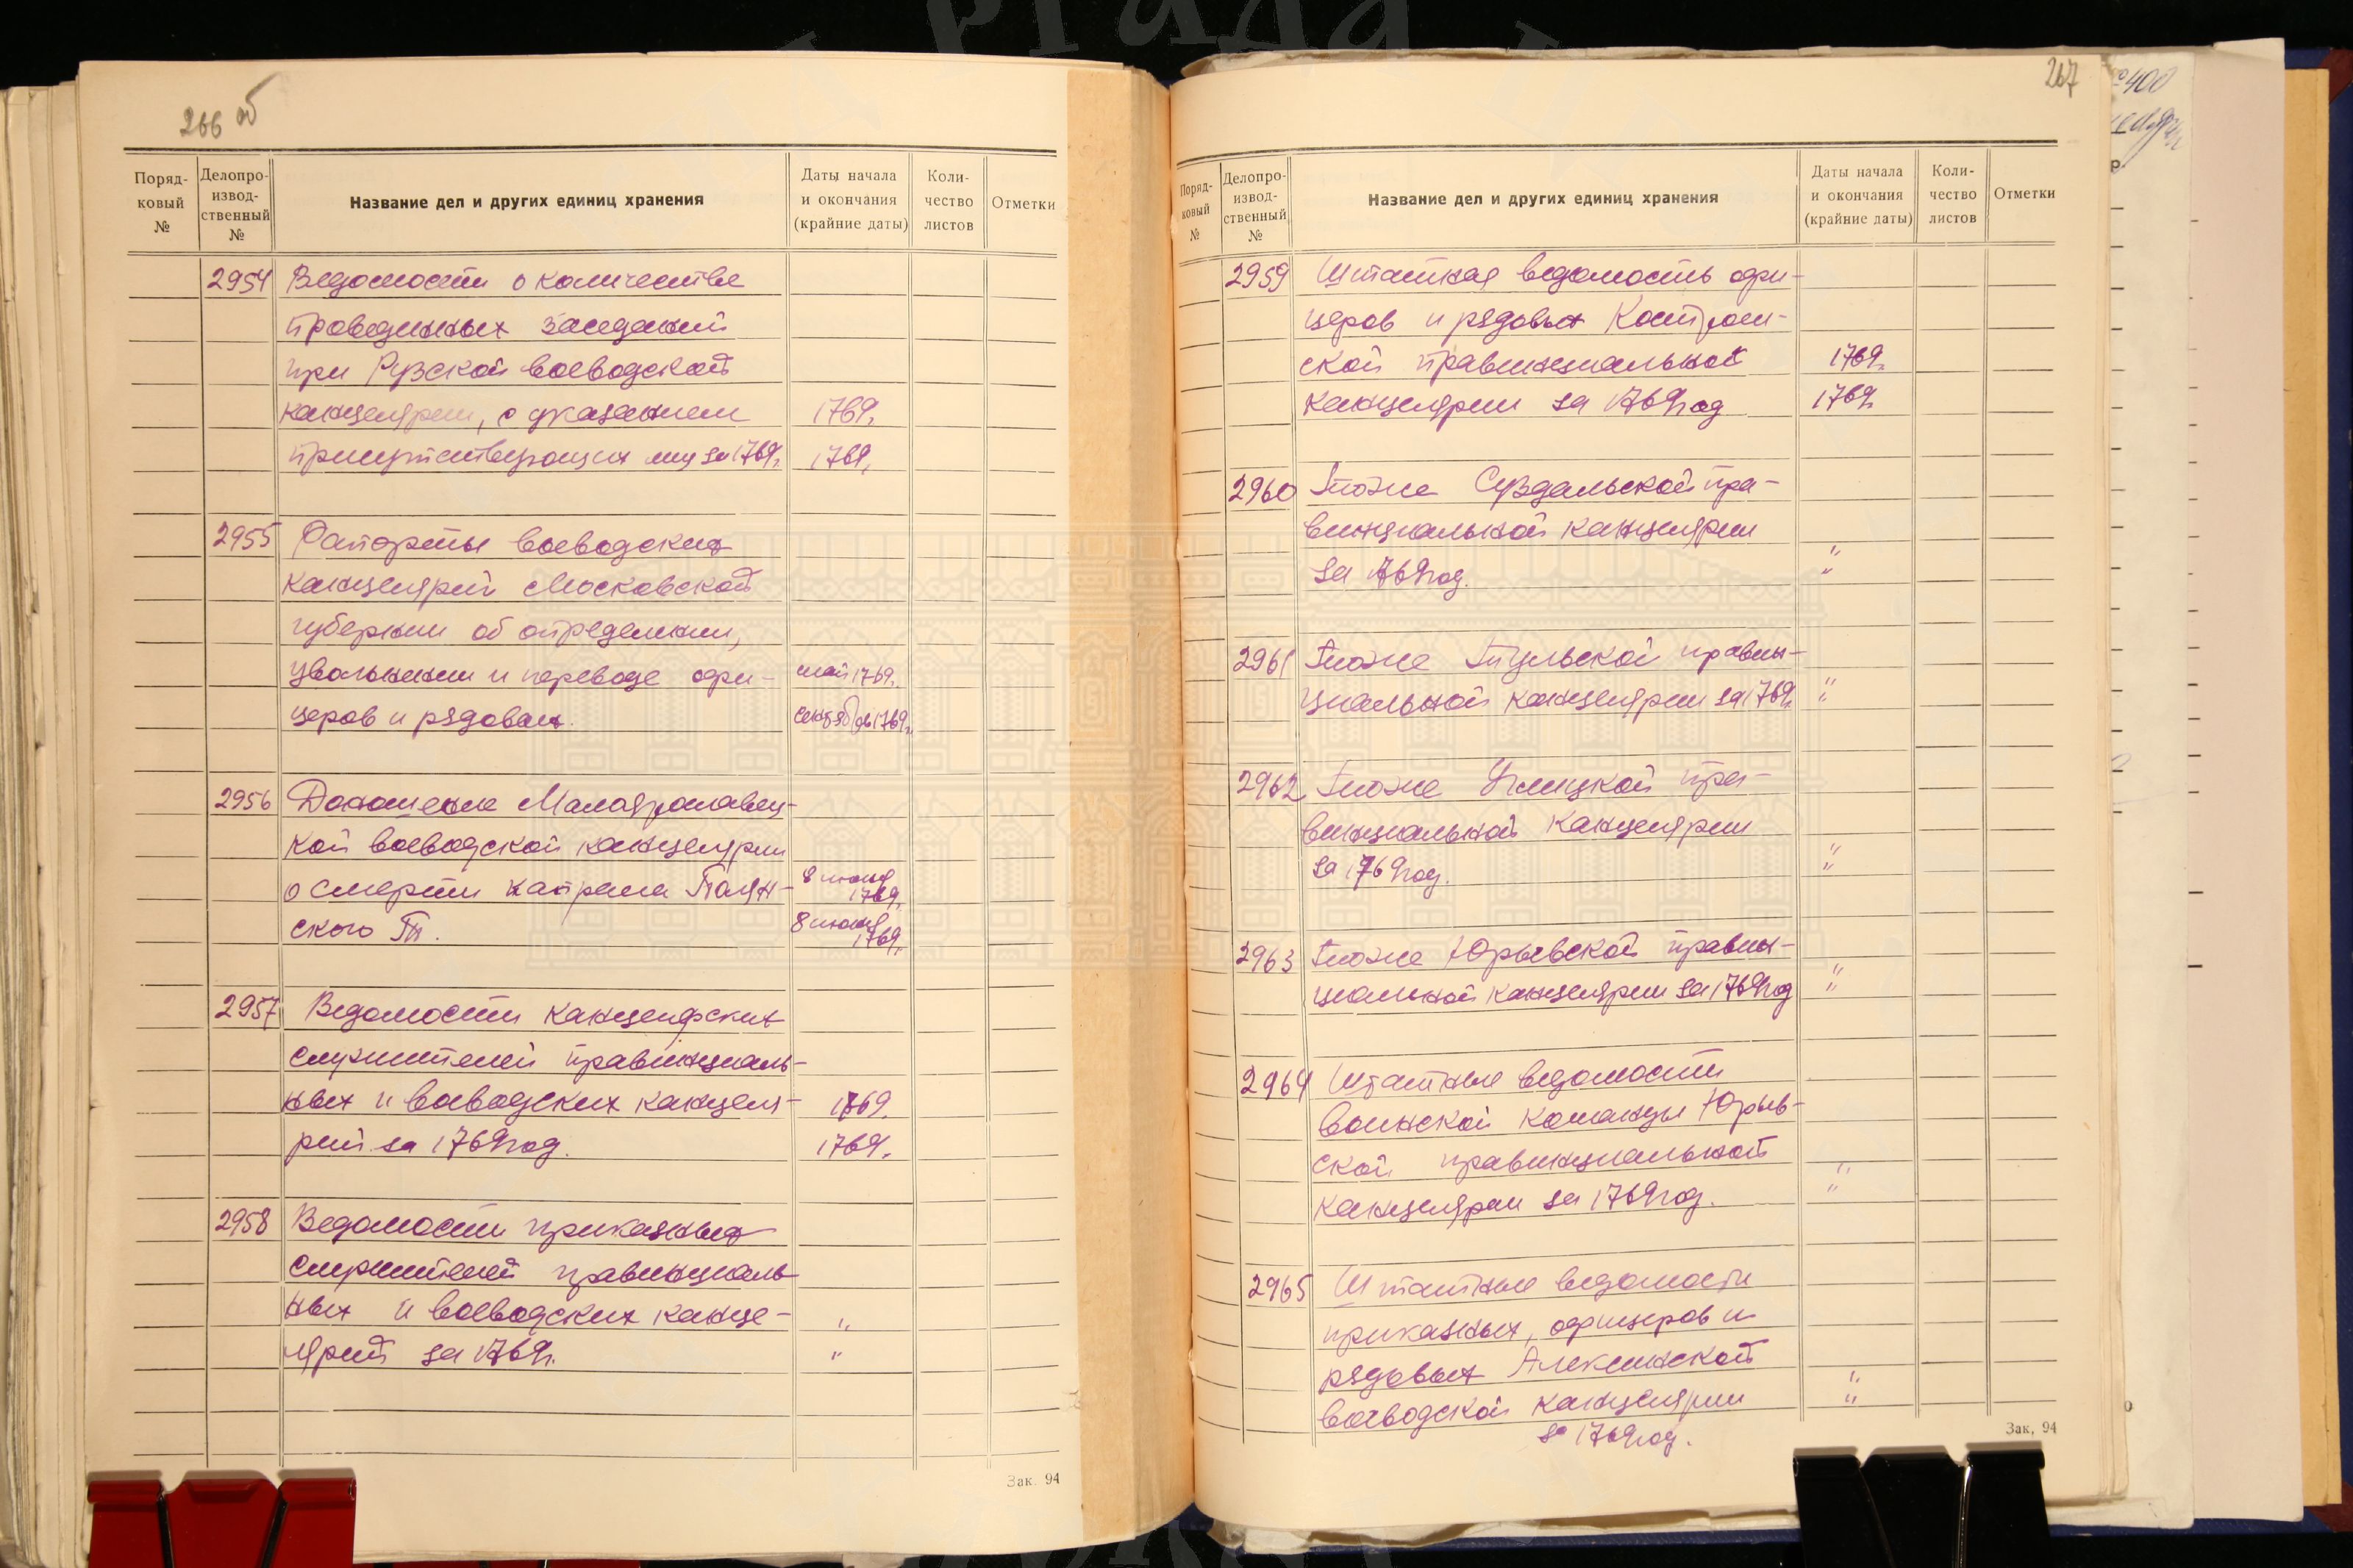 266 об
Поряд-
ковый
№
Делопро-
извод-
ственный
№
Название дел и других единиц хранения
Даты начала
и окончания
(крайние даты)
Коли-
чество
листов
Отметки
2954 Ведомости о количестве
проведенных заседаний
при Рузской воеводской
канцелярии, с указанием 1769г.
присутствующих лиц за 1769г. 1769г.
2955 Рапорты воеводских
канцелярий Московской
губернии об определении,
увольнении и переводе офи- май 1769г.
церов и рядовых. сентябрь 1769г.
2956 Доношение Малоярославец-
кой воеводской канцелярии
о смерти капрала 8 июня
1769г.
ского 8 июня
1769г.
2957 Ведомости канцелярских
служителей провинциаль-
ных и воеводских канцеля- 1769г.
рий за 1769 год. 1769г.
2958 Ведомости приказных
служителей провинциаль
ных и воеводских канце- "
лярий за 1769г. "
Зак. 94
267
Поряд-
ковый
№
Делопро-
извод-
ственный
№
Название дел и других единиц хранения
Даты начала
и окончания
(крайние даты)
Коли-
чество
листов
Отметки
2959 Штатная ведомость офи-
церов и рядовых Костром-
ской провинциальной 1769г.
канцелярии за 1769 год 1769г.
2960 То же Суздальской про-
винциальной канцелярии
за 1769 год. "
"
2961 То же Тульской провин-
циальной канцелярии за 1769г. "
"
2962 То же Углицкой про-
винциальной канцелярии
за 1769 год. "
"
2963 То же Юрьевской провин-
циальной канцелярии за 1769 год "
"
2964 Штатные ведомости
воинской команды Юрьев-
ской провинциальной "
канцелярии за 1769 год. "
2965 Штатные ведомости
приказных, офицеров и
рядовых Алексинской "
воеводской канцелярии "
за 1769 год.
Зак. 94